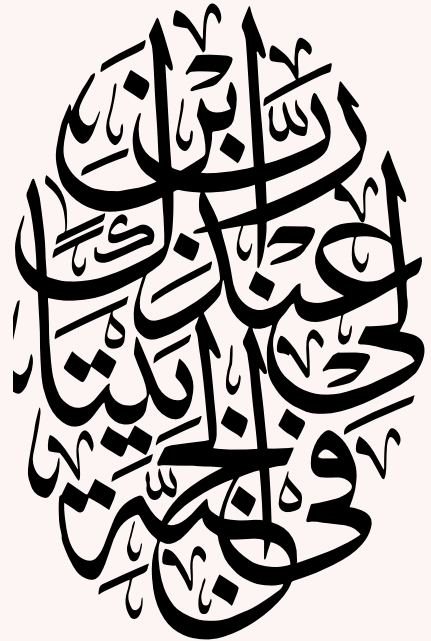 رَبِّ ابْنِ
لِي عِنْدَكَ
بَيْتًا
فِي الْجَنَّةِ